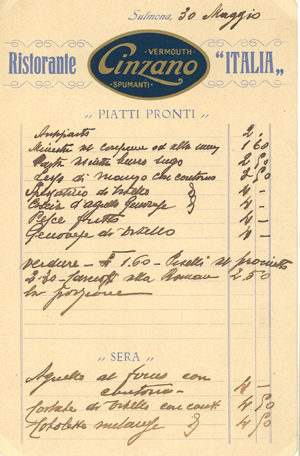 Sulmona, 30 Maggio
VERMOUTH
Cinzano
SPUMANTI
Ristorante "ITALIA"
„ PIATTI PRONTI „
Antipasto 2 -
Minestra al consome od alla 1 60
Pasta sugo 2 50
Lesso di manzo con contorno 3 50
Spezzatino di vitello 4 -
d'agello 4 -
Pesce fritto 4 -
Genovese di vitello 4 -
Verdure - 1.60 - Piselli al prociutto
2.30 - Carciofi alla Romana 2.50
la porzione
„ SERA „
Agnello al forno con
contorno 4 -
di vitello con cont. 4 50
4 50